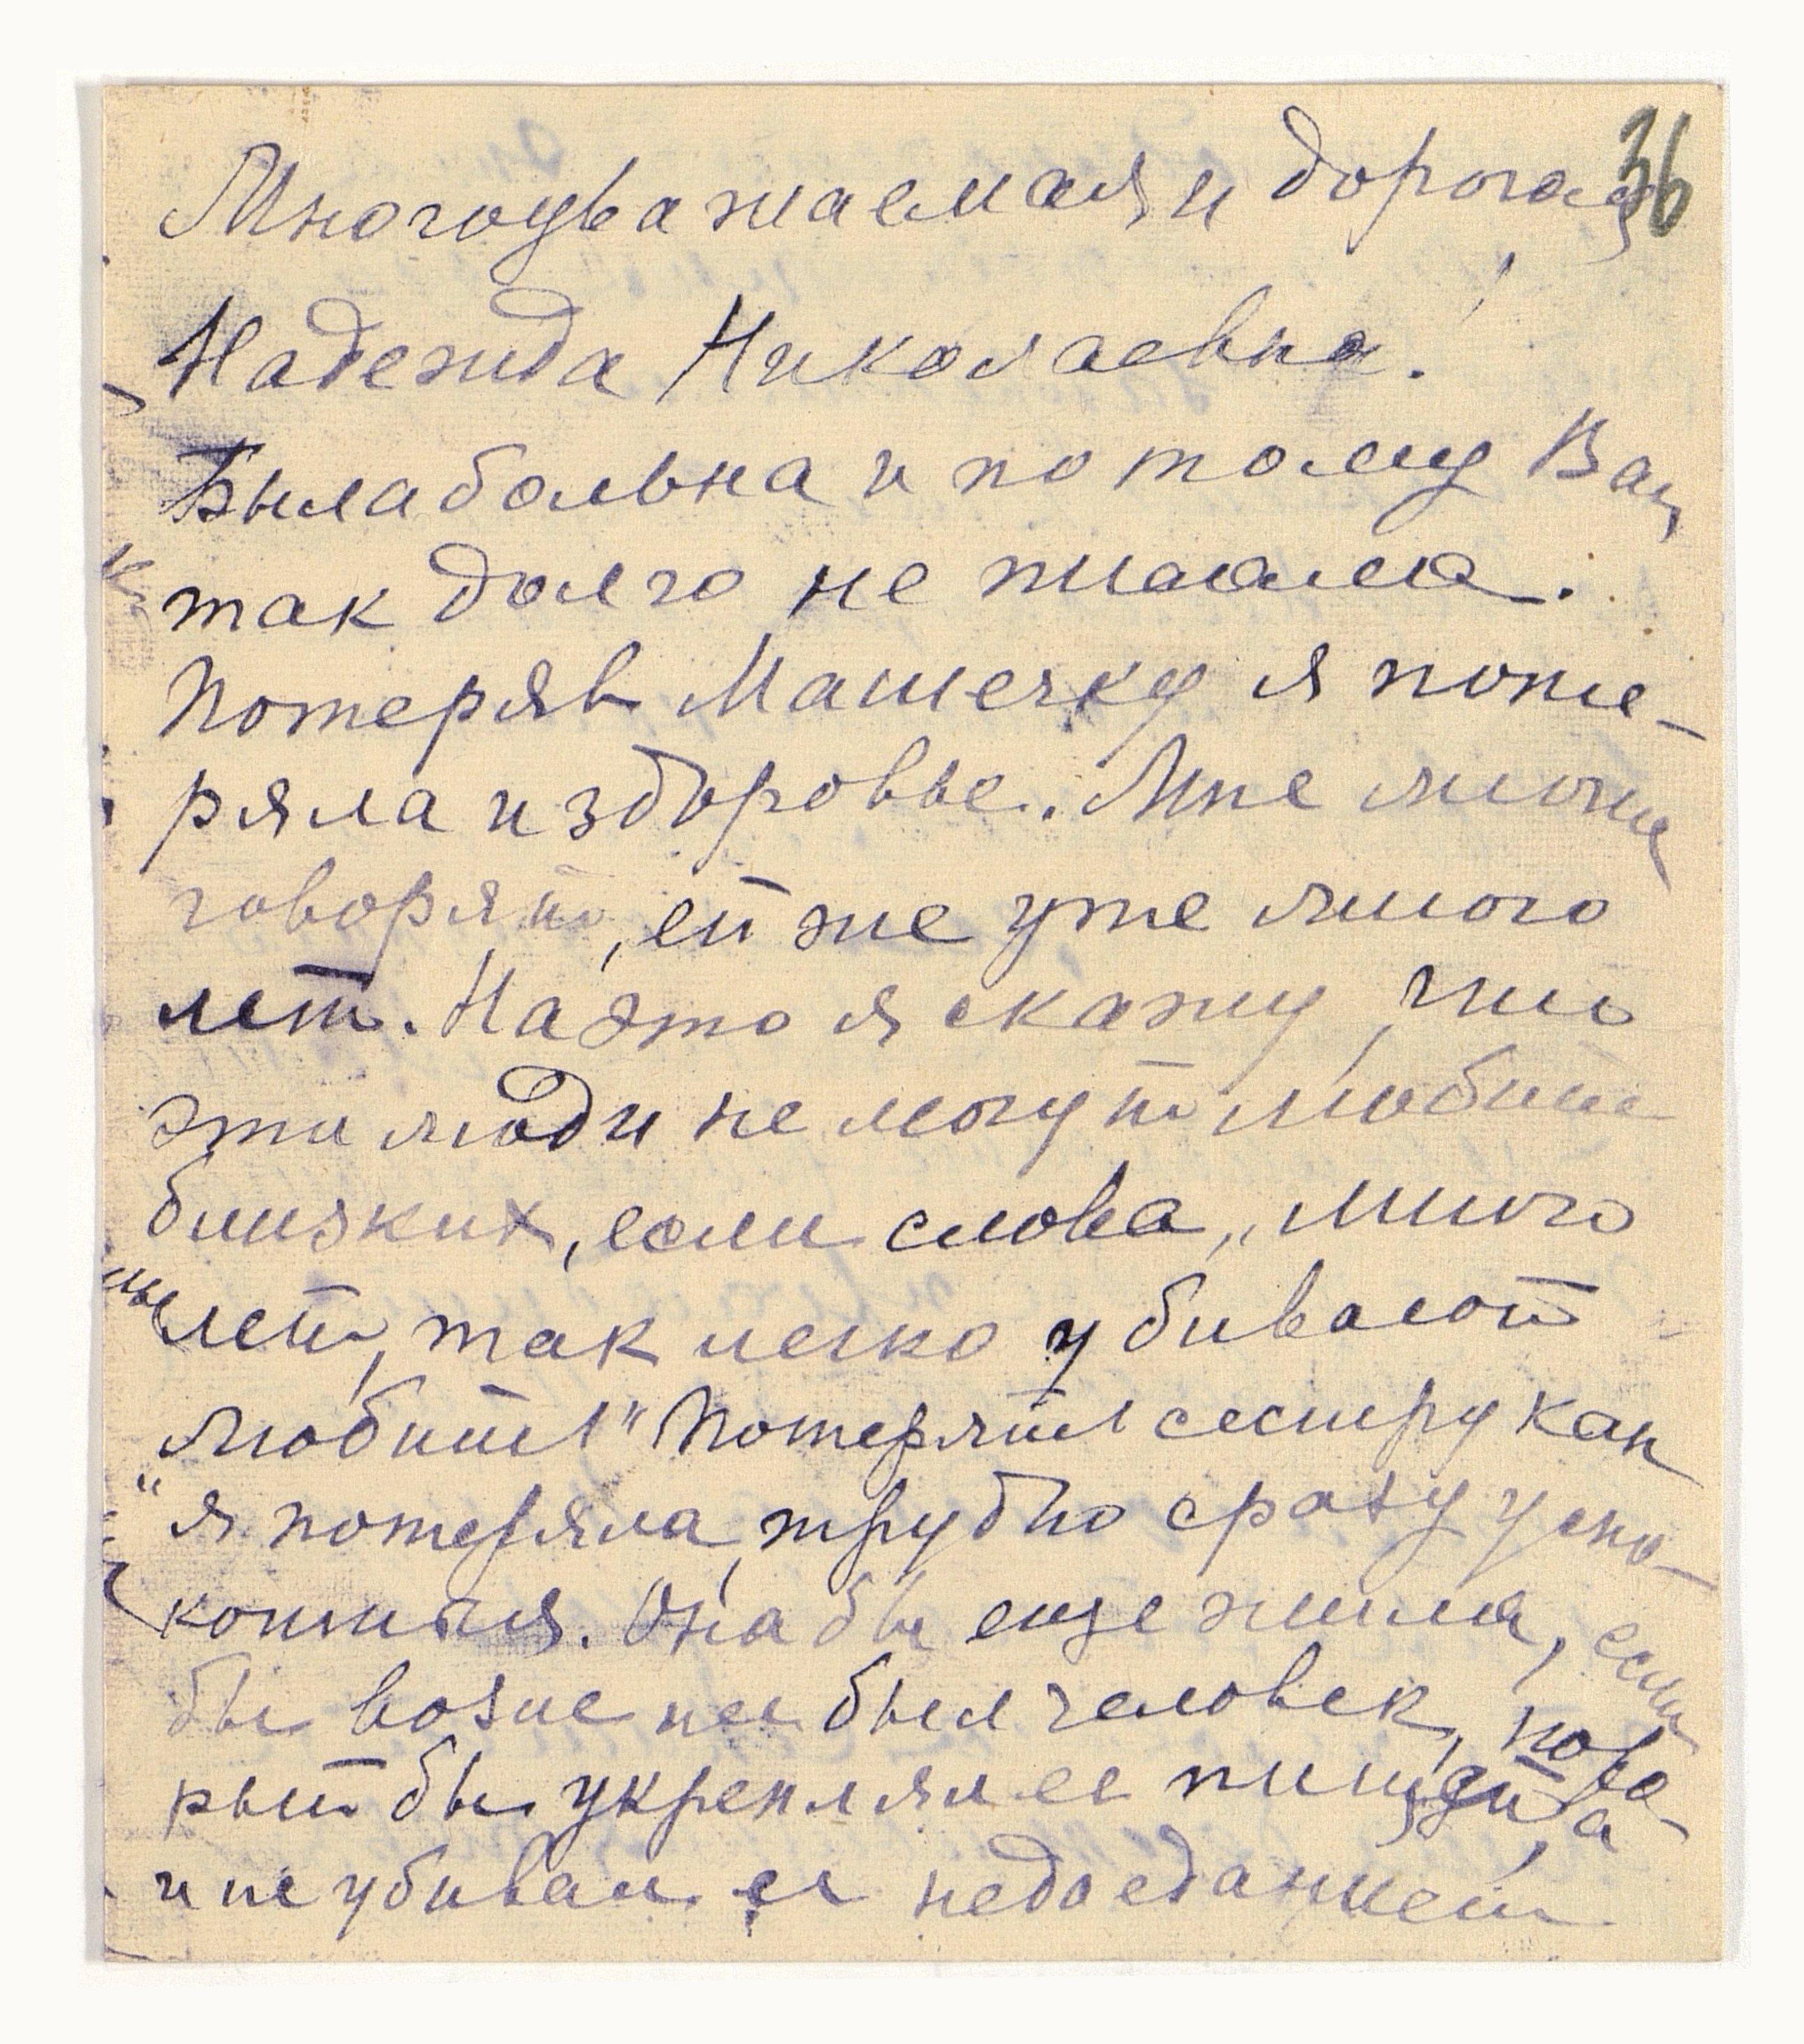 36
Многоуважаемая и дорогая
Надежда Николаевна!
Была больна и потому Вам
так долго не писала.
Потеряв Машечку я поте-
ряла и здоровье. Мне многие
говорят, ей же уже много
лет. На это я скажу, что
эти люди не могут любить
близких, если слова „много
лет, так легко убивают
любить" Потерять сестру как
"я потеряла, трудно сразу успо-
коиться. Она бы еще жила, если
бы возле нее был человек, кото-
рый бы укреплял ее пищей, а
и не убивал ее недоеданием